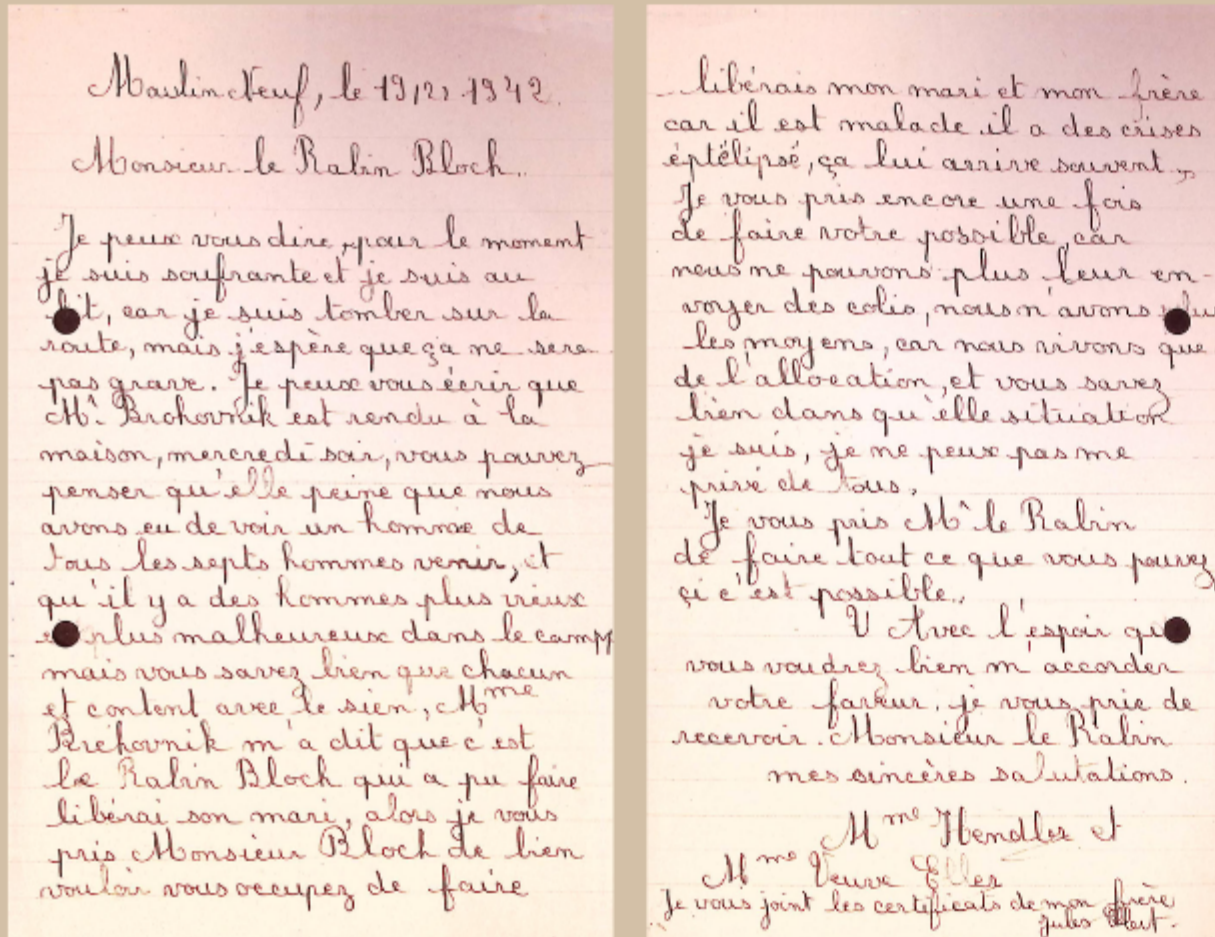 Moulin Neuf, le 19/2/1942.
Monsieur le Rabin Bloch.
Je peux vous dire, pour le moment
je suis soufrante et je suis au
lit, car je suis tomber sur la
route, mais j'espère que ça ne sera
pas grave. Je peux vous écrir que
Mr. Brohovnik est rendu à la
maison, mercredi soir, vous pouvez
penser qu'elle peine que nous
avons eu de voir un homme de
tous les septs hommes venir, et
qu'il y a des hommes plus vieux
plus malheureux dans le camp
mais vous savez bien que chacun
et content avec le sien, Mme
Bréhovnik m'a dit que c'est
le Rabin Bloch qui a pu faire
libérai son mari, alors je vous
pris Monsieur Bloch de bien
vouloir vous occupez de faire
libérais mon mari et mon frère
car il est malade il a des crises
éptélipsé, ça lui arrive souvent,
Je vous pris encore une fois
de faire votre possible, car
nous ne pouvons plus leur en-
voyer des colis, nous n'avons plus
les moyens, car nous vivons que
de l'allocation, et vous savez
bien dans qu'elle situation
je suis, je ne peux pas me
privé de tous.
Je vous pris Mr le Rabin
de faire tout ce que vous pouvez
çi c'est possible.
Avec l'espoir que
vous voudrez bien m'accorder
votre faveur, je vous prie de
recevoir. Monsieur le Rabin
mes sincères salutations.
Mme Hendler et
Mme Veuve Eller
Je vous joint les certificats de mon frère
Jules